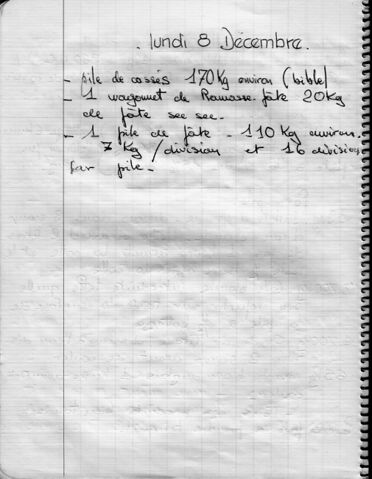 . lundi 8 Décembre.
- pile de cassés 170 Kg environ (bible)
- 1 wagonnet de Ramasse. pâte 20 Kg
de pâte see see.
- 1 pile de pâte - 110 Kg environ.
7 Kg / division et 16 division
par pile.